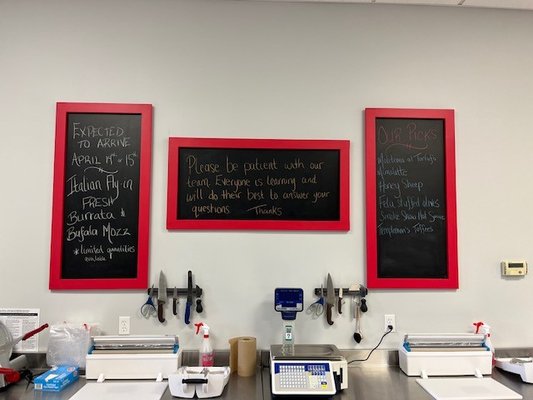 EXPECTED
TO ARRIVE
APRIL 14th OR 15th
Italian Fly-in
FRESH
Burrata &
Bufala Mozz
*limited quantities
available
Please be patient with our
team. Everyone is learning and
will do their best to answer your
questions Thanks
OUR PICKS
Mimolette
Honey Sheep
Feta stuffed olives
Simple Show Hot
Templeman's Toffees